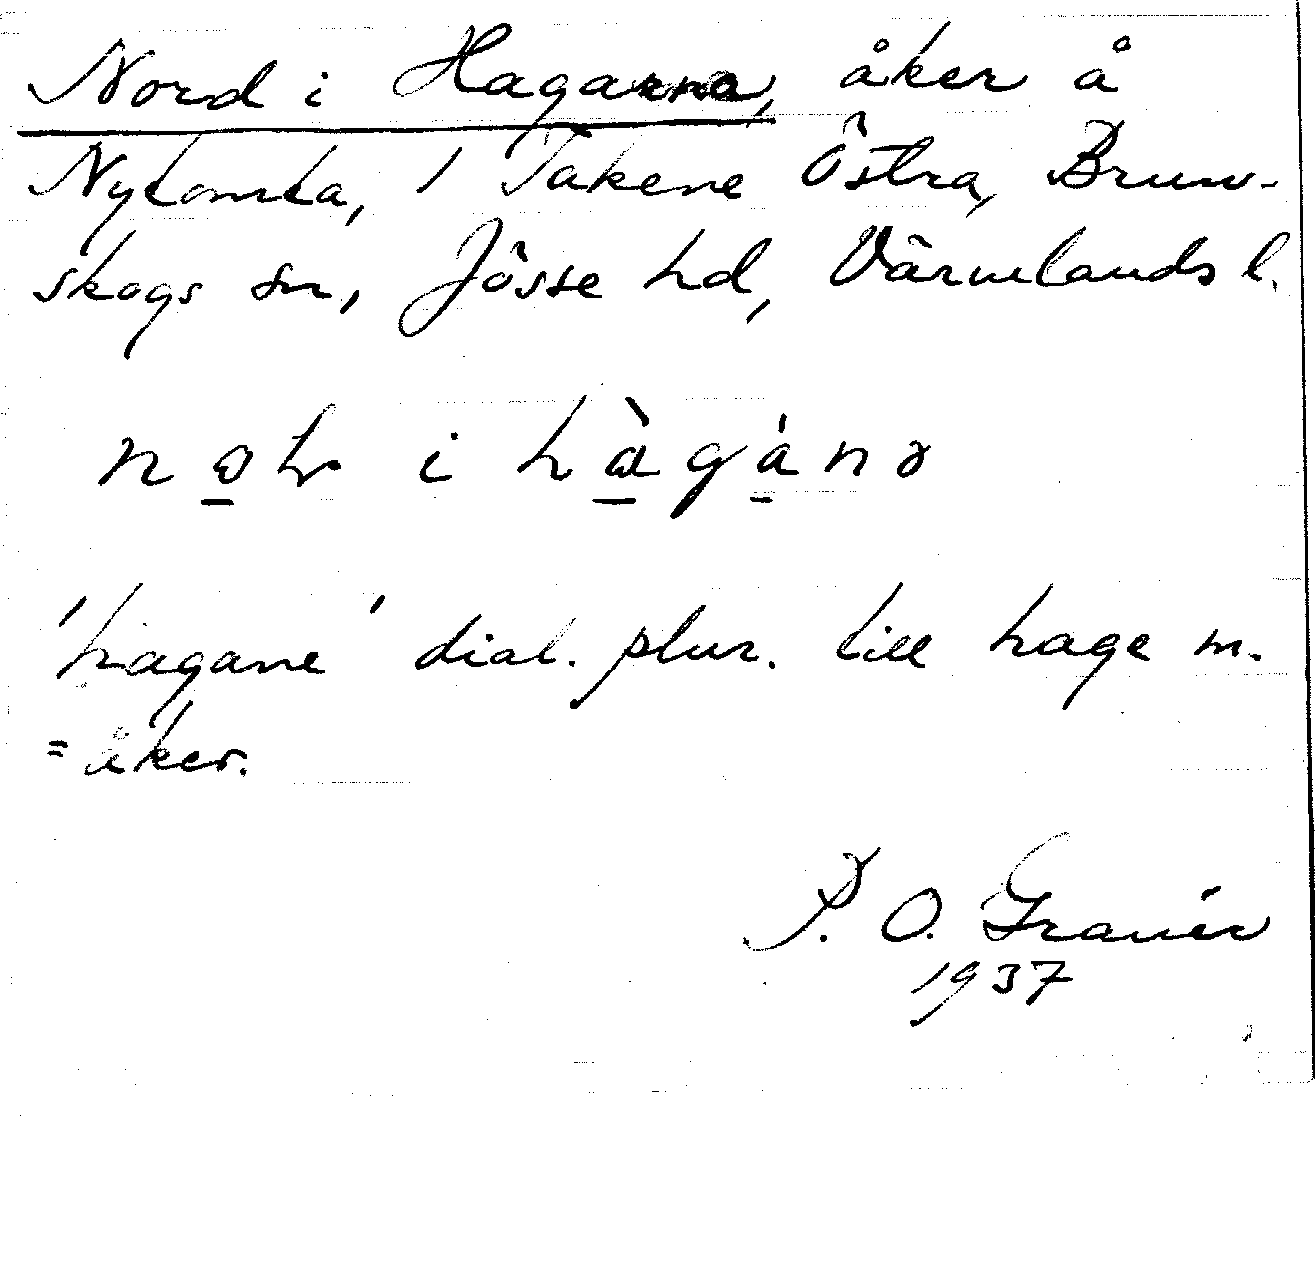 Nord i Hagarna, åker å
Nytomta, 1 Takene Östra, Brun-
skogs sn, Jösse hd, Värmlands l.
i
'hagane' dial. plur. till hage m.
= åker.
P. O. Granér
1937